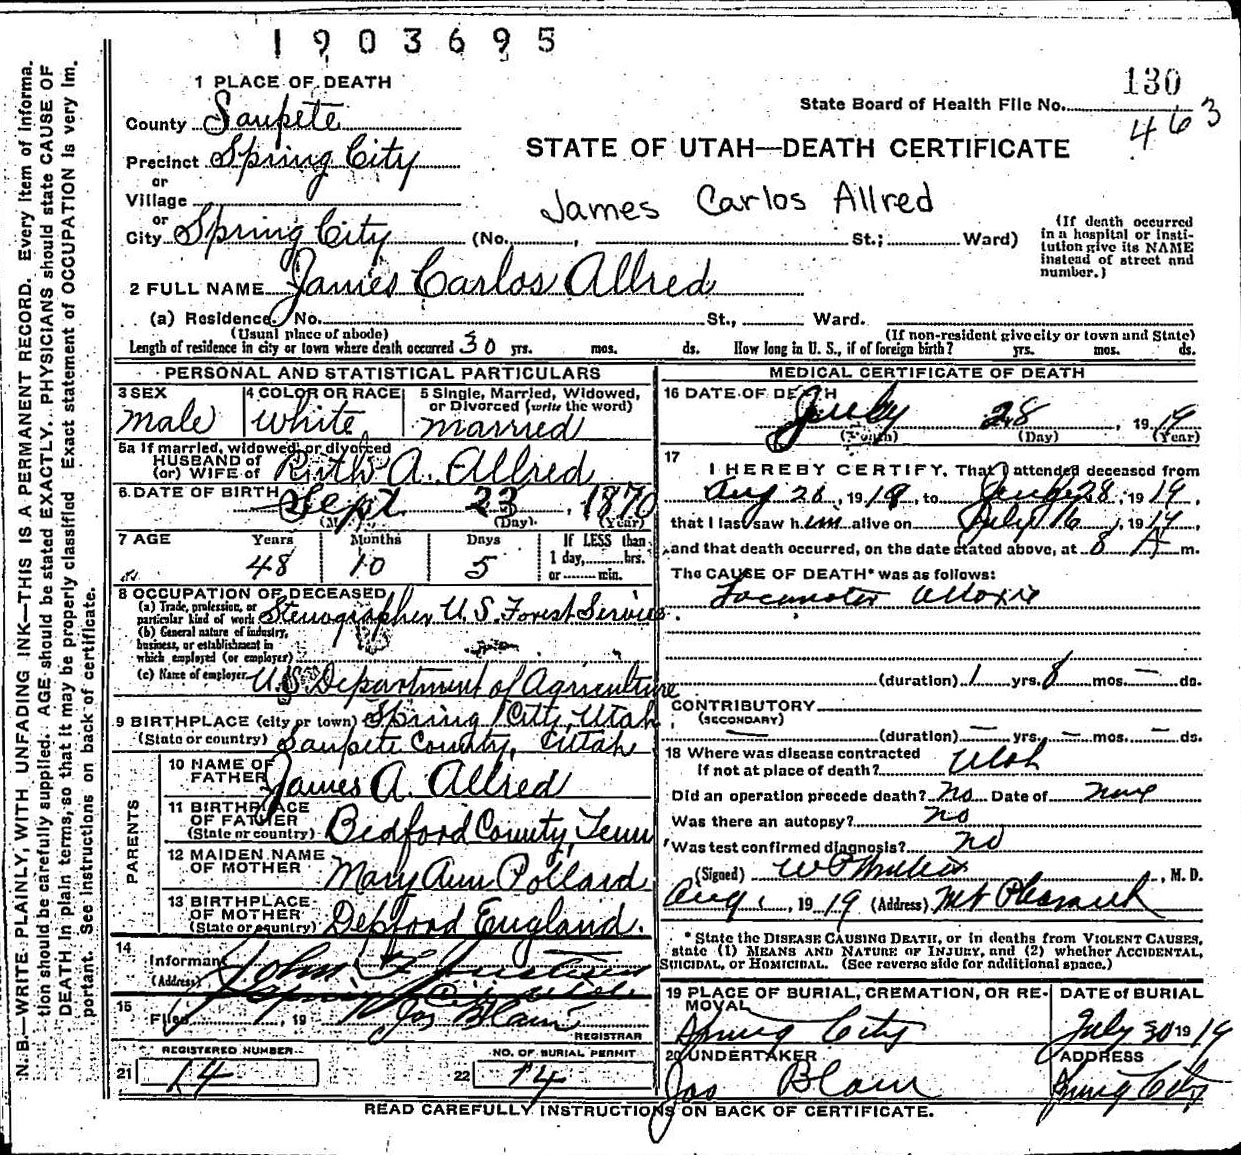 1903695
1 PLACE OF DEATH
130
State Board of Health File No. 463
County Sanpete
STATE OF UTAH—DEATH CERTIFICATE
Precinct Spring City
or
Village
James Carlos Allred
or
City Spring City (No. , St.; Ward)
(If death occurred in a hospital or insti-
tution give its NAME
instead of street and
number.)
2 FULL NAME James Carlos Allred
(a) Residence. No. St., Ward.
(Usual place of abode) (If non-resident give city or town and State)
Length of residence in city or town where death occurred 30 yrs. mos. ds. How long in U. S., if of foreign birth? yrs. mos. ds.
PERSONAL AND STATISTICAL PARTICULARS
3 SEX
male
4 COLOR OR RACE
White
5 Single, Married, Widowed,
or Divorced (write the word)
married
5a If married, widowed, or divorced
HUSBAND of
(or) WIFE of Ruth A. Allred
6 DATE OF BIRTH Sept 23, 1870
(Day). (Year)
7 AGE Years Months Days If LESS than
48 10 5 1 day, hrs.
or min.
8 OCCUPATION OF DECEASED
(a) Trade, profession, or
particular kind of work Stenographer U.S. Forest Service
(b) General nature of industry,
business, or establishment in
which employed (or employer)
(c) Name of employer U.S. Department of Agriculture
9 BIRTHPLACE (city or town) Spring City, Utah
(State or country) Sanpete County, Utah
PARENTS
10 NAME OF
FATHER James A. Allred
11 BIRTHPLACE
OF FATHER
(State or country) Bedford County, Tenn
12 MAIDEN NAME
OF MOTHER Mary Ann Pollard
13 BIRTHPLACE
OF MOTHER
(State or country) Deptford England.
14
Informant John
(Address) Spring City Utah
15
Filed , 19 Jas Blain
REGISTRAR
REGISTERED NUMBER
21 14
NO. OF BURIAL PERMIT
22 14
MEDICAL CERTIFICATE OF DEATH
16 DATE OF DEATH
July 28, 1919
(Month) (Day) (Year)
17
I HEREBY CERTIFY, That I attended deceased from
Aug 28, 1919, to July 28, 1919,
that I last saw him alive on July 16, 1919,
and that death occurred, on the date stated above, at 8 A m.
The CAUSE OF DEATH* was as follows:
(duration) 1 yrs. 8 mos. — ds.
CONTRIBUTORY
(SECONDARY)
— (duration) — yrs. — mos. — ds.
18 Where was disease contracted
if not at place of death? Utah
Did an operation precede death? No Date of none
Was there an autopsy? no
Was test confirmed diagnosis? no
(Signed) , M. D.
Aug 1, 1919 (Address) Mt Pleasant
* State the DISEASE CAUSING DEATH, or in deaths from VIOLENT CAUSES,
state (1) MEANS AND NATURE OF INJURY, and (2) whether ACCIDENTAL,
SUICIDAL, or HOMICIDAL. (See reverse side for additional space.)
19 PLACE OF BURIAL, CREMATION, OR RE-
MOVAL
Spring City
DATE of BURIAL
July 30 1919
20 UNDERTAKER
Jas Blain
ADDRESS
Spring City
READ CAREFULLY INSTRUCTIONS ON BACK OF CERTIFICATE.
N. B—WRITE PLAINLY, WITH UNFADING INK—THIS IS A PERMANENT RECORD. Every item of informa-
tion should be carefully supplied. AGE should be stated EXACTLY. PHYSICIANS should state CAUSE OF
DEATH in plain terms, so that it may be properly classified Exact statement of OCCUPATION is very im-
portant. See instructions on back of certificate.